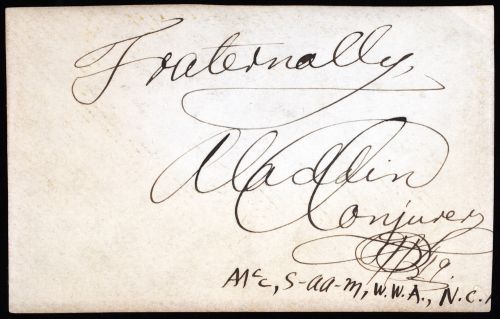 Fraternally,
Aladdin
Conjurer
Mc, S-aa-m, W.W.A., N.C.